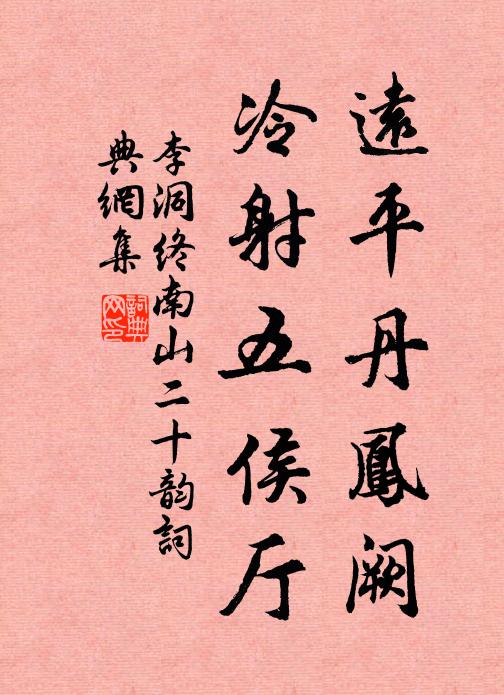 遠平丹鳳闕
冷射五侯厅
李洞终南山二十韵詞
典網集
詞典
网印